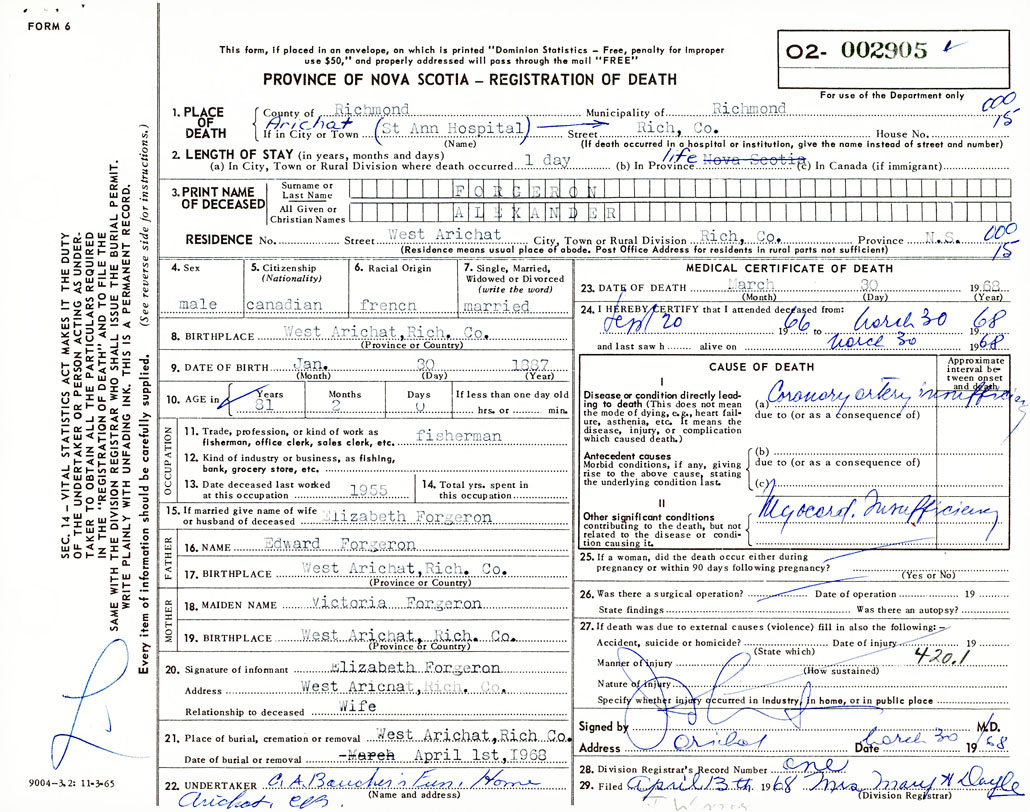 FORM 6
This form, if placed in an envelope, on which is printed "Dominion Statistics – Free, penalty for improper
use $50," and properly addressed will pass through the mail "FREE"
PROVINCE OF NOVA SCOTIA – REGISTRATION OF DEATH
O2- 002905
For use of the Department only
SEC. 14 – VITAL STATISTICS ACT MAKES IT THE DUTY
OF THE UNDERTAKER OR PERSON ACTING AS UNDER-
TAKER TO OBTAIN ALL THE PARTICULARS REQUIRED
IN THE "REGISTRATION OF DEATH" AND TO FILE THE
SAME WITH THE DIVISION REGISTRAR WHO SHALL ISSUE THE BURIAL PERMIT.
WRITE PLAINLY WITH UNFADING INK. THIS IS A PERMANENT RECORD.
Every item of information should be carefully supplied. (See reverse side for instructions.)
1. PLACE OF DEATH
County of Richmond Municipality of Richmond
000
15
Arichat
If in City or Town (St Ann Hospital) Street Rich, Co. House No.
(Name) (If death occurred in a hospital or institution, give the name instead of street and number)
2. LENGTH OF STAY (in years, months and days)
(a) In City, Town or Rural Division where death occurred 1 day (b) In Province life Nova Scotia (c) In Canada (if immigrant)
3. PRINT NAME OF DECEASED
Surname or Last Name FORGERON
All Given or Christian Names ALEXANDER
RESIDENCE No. Street West Arichat City, Town or Rural Division Rich, Co. Province N.S. 000
(Residence means usual place of abode. Post Office Address for residents in rural parts not sufficient) 15
4. Sex male
5. Citizenship (Nationality) canadian
6. Racial Origin frencn
7. Single, Married, Widowed or Divorced (write the word) married
8. BIRTHPLACE West Arichat,Rich. Co.
(Province or Country)
9. DATE OF BIRTH Jan. 30 1887
(Month) (Day) (Year)
10. AGE in Years Months Days If less than one day old
81 2 0 hrs. or min.
OCCUPATION
11. Trade, profession, or kind of work as
fisherman, office clerk, sales clerk, etc. fisherman
12. Kind of industry or business, as fishing,
bank, grocery store, etc.
13. Date deceased last worked
at this occupation 1955
14. Total yrs. spent in
this occupation
15. If married give name of wife
or husband of deceased Elizabeth Forgeron
FATHER
16. NAME Edward Forgeron
17. BIRTHPLACE West Arichat,Rich. Co.
(Province or Country)
MOTHER
18. MAIDEN NAME Victoria Forgeron
19. BIRTHPLACE West Arichat, Rich. Co.
(Province or Country)
20. Signature of informant Elizabeth Forgeron
Address West Aricnat,Rich. Co.
Relationship to deceased Wife
21. Place of burial, cremation or removal West Arichat,Rich Co.
Date of burial or removal -March April 1st,1968
22. UNDERTAKER C.A. Boucher's Fun. Home
(Name and address)
Arichat, C.B.
9004-3.2: 11-3-65
MEDICAL CERTIFICATE OF DEATH
23. DATE OF DEATH March 30 1968
(Month) (Day) (Year)
24. I HEREBY CERTIFY that I attended deceased from:
Sept 20 1966 to March 30 1968
and last saw h alive on March 30 1968
CAUSE OF DEATH
Approximate interval be-
tween onset
and death
I
Disease or condition directly lead-
ing to death (This does not mean
the mode of dying, e.g., heart fail-
ure, asthenia, etc. It means the
disease, injury, or complication
which caused death.)
(a) Coronary artery insufficiency
due to (or as a consequence of)
Antecedent causes
Morbid conditions, if any, giving
rise to the above cause, stating
the underlying condition last.
(b)
due to (or as a consequence of)
(c)
II
Other significant conditions
contributing to the death, but not
related to the disease or condi-
tion causing it.
Myocard. Insufficiency
25. If a woman, did the death occur either during
pregnancy or within 90 days following pregnancy?
(Yes or No)
26. Was there a surgical operation? Date of operation 19
State findings Was there an autopsy?
27. If death was due to external causes (violence) fill in also the following:–
Accident, suicide or homicide? Date of injury 19
(State which)
Manner of injury 420.1
(How sustained)
Nature of injury
Specify whether injury occurred in Industry, in home, or in public place
Signed by M.D.
Address Arichat Date March 30 1968
28. Division Registrar's Record Number one
29. Filed April 13th 1968 Mrs Mary H Doyle
(Division Registrar)